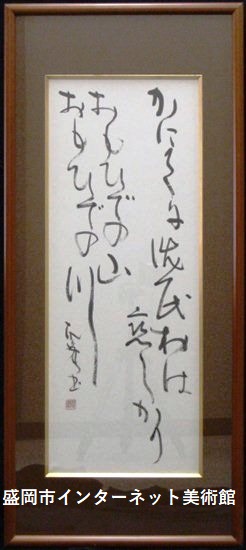 かにかくに渋民村は
恋しかり
おもひでの山
おもひでの川
盛岡市インターネット美術館